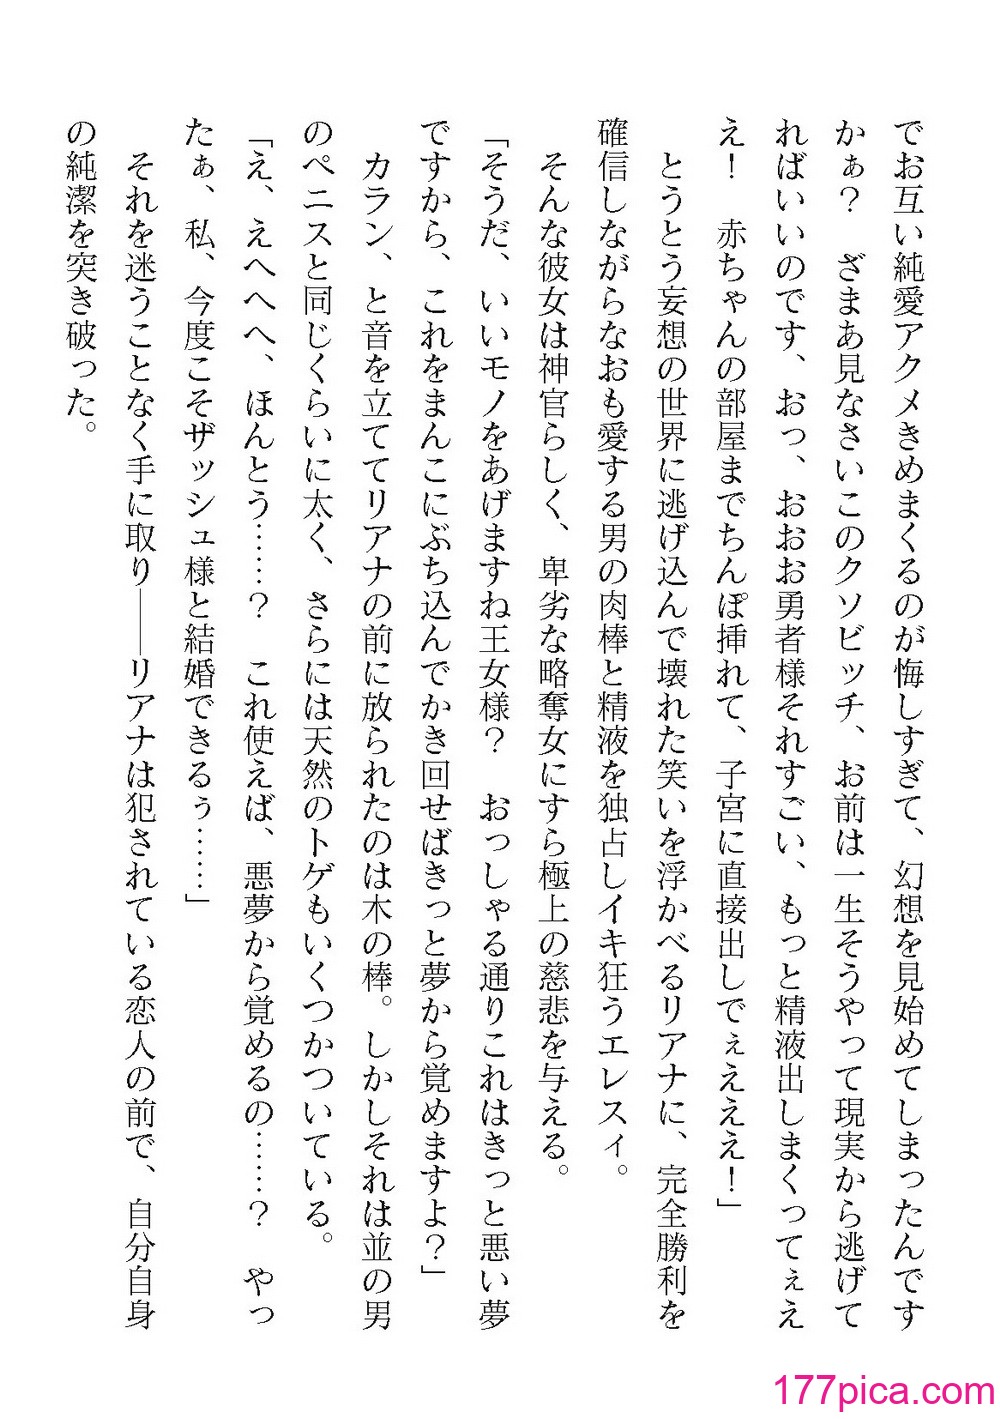 でお互い純愛アクメきめまくるのが悔しすぎて、幻想を見始めてしまったんです
かぁ？　ざまあ見なさいこのクソビッチ、お前は一生そうやって現実から逃げて
ればいいのです、おっ、おおお勇者様それすごい、もっと精液出しまくってぇえ
え！　赤ちゃんの部屋までちんぽ挿れて、子宮に直接出しでぇえええ！」
　とうとう妄想の世界に逃げ込んで壊れた笑いを浮かべるリアナに、完全勝利を
確信しながらなおも愛する男の肉棒と精液を独占しイキ狂うエレスィ。
　そんな彼女は神官らしく、卑劣な略奪女にすら極上の慈悲を与える。
「そうだ、いいモノをあげますね王女様？　おっしゃる通りこれはきっと悪い夢
ですから、これをまんこにぶち込んでかき回せばきっと夢から覚めますよ？」
　カラン、と音を立ててリアナの前に放られたのは木の棒。しかしそれは並の男
のペニスと同じくらいに太く、さらには天然のトゲもいくつかついている。
「え、えへへへ、ほんとう……？　これ使えば、悪夢から覚めるの……？　やっ
たぁ、私、今度こそザッシュ様と結婚できるぅ……」
　それを迷うことなく手に取り――リアナは犯されている恋人の前で、自分自身
の純潔を突き破った。
177pica.com